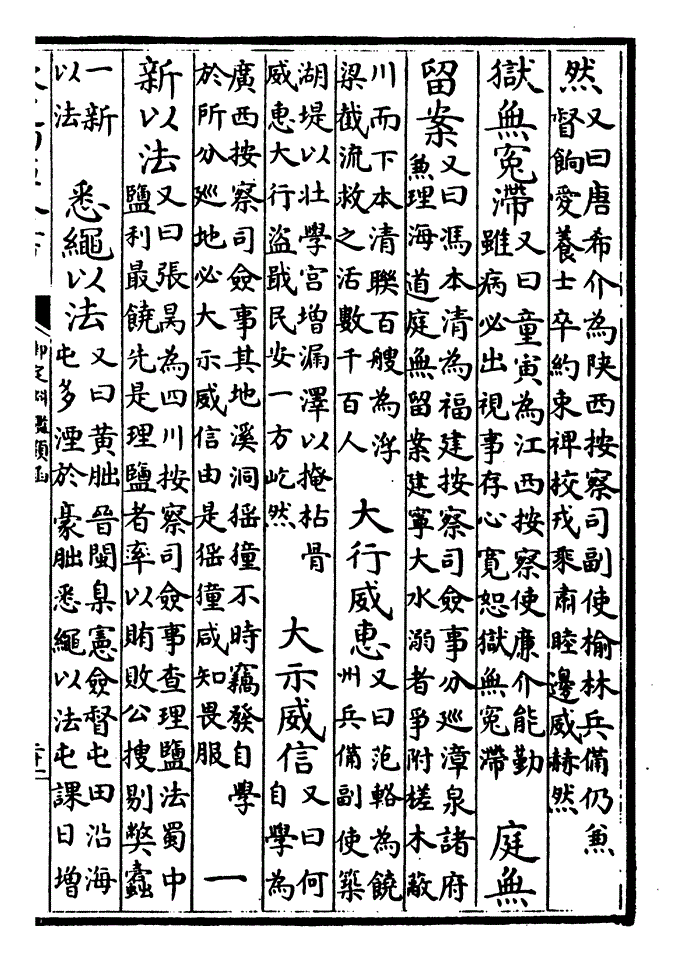 然 又曰唐希介為陝西按察司副使榆林兵備仍兼
督餉愛養士卒約束裨校戎乘肅睦邊威赫然
獄無冤滯 又曰童寅為江西按察使廉介能勤
雖病必出視事存心寬恕獄無冤滯 庭無
留案 又曰馮本清為福建按察司僉事分廵漳泉諸府
兼理海道庭無留案建寧大水溺者爭附槎木蔽
川而下本清聯百艘為浮
梁截流救之活數千百人 大行威惠 又曰范輅為饒
州兵備副使築
湖堤以壯學宮增漏澤以掩枯骨
威惠大行盜戢民安一方屹然 大示威信 又曰何
自學為
廣西按察司僉事其地溪洞猺獞不時竊發自學
於所分廵地必大示威信由是猺獞咸知畏服 一
新以法 又曰張昺為四川按察司僉事查理鹽法蜀中
鹽利最饒先是理鹽者率以賄敗公搜剔弊蠹
一新
以法 悉繩以法 又曰黃朏晉閩臬憲僉督屯田沿海
屯多湮於豪朏悉繩以法屯課日增